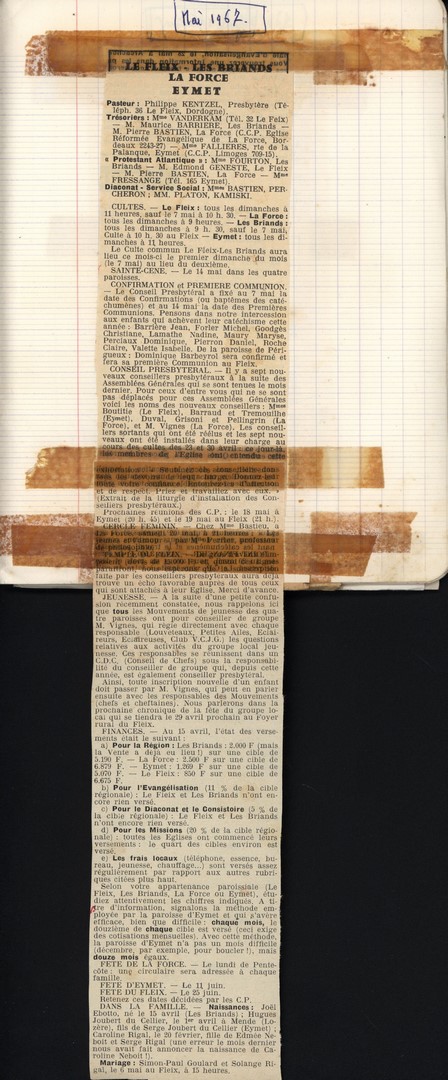 Mai 1967.
LE FLEIX - LES BRIANDS
LA FORCE
EYMET
Pasteur : Philippe KENTZEL, Presbytère (Té-
léph. 36 Le Fleix, Dordogne).
Trésoriers : Mme VANDERKAM (Tél. 32 Le Feix)
— M. Maurice BARRIERE, Les Briands —
M. Pierre BASTIEN, La Force (C.C.P. Eglise
Réformée Evangélique de La Force, Bor-
deaux 2243-27) — Mme FALLIERES, rte de la
Palanque, Eymet (C.C.P. Limoges 709-15).
« Protestant Atlantique » : Mme FOURTON, Les
Briands — M. Edmond GENESTE, Le Fleix
— M. Pierre BASTIEN, La Force — Mme
FRESSANGE (Tél. 165 Eymet).
Diaconat - Service Social : Mmes BASTIEN, PER-
CHERON ; MM. PLATON, KAMISKI.
CULTES. — Le Fleix : tous les dimanches à
11 heures, sauf le 7 mai à 10 h. 30. — La Force :
tous les dimanches à 9 heures. — Les Briands :
tous les dimanches à 9 h. 30, sauf le 7 mai,
Culte à 10 h. 30 au Fleix — Eymet : tous les di-
manches à 11 heures.
Le Culte commun Le Fleix-Les Briands aura
lieu ce mois-ci le premier dimanche du mois
(le 7 mai) au lieu du deuxième.
SAINTE-CENE. — Le 14 mai dans les quatre
paroisses.
CONFIRMATION et PREMIERE COMMUNION.
— Le Conseil Presbytéral a fixé au 7 mai la
date des Confirmations (ou baptêmes des caté-
chumènes) et au 14 mai la date des Premières
Communions. Pensons dans notre intercession
aux enfants qui achèvent leur catéchisme cette
année : Barrière Jean, Forler Michel, Goodgès
Christiane, Lamathe Nadine, Maury Maryse,
Perciaux Dominique, Pierron Daniel, Roche
Claire, Valette Isabelle. De la paroisse de Péri-
gueux : Dominique Barbeyrol sera confirmé et
fera sa première Communion au Fleix.
CONSEIL PRESBYTERAL. — Il y a sept nou-
veaux conseillers presbytéraux à la suite des
Assemblées Générales qui se sont tenues le mois
dernier. Pour ceux d'entre vous qui ne se sont
pas déplacés pour ces Assemblées Générales
voici les noms des nouveaux conseillers : Mmes
Boutitie (Le Fleix), Barraud et Tremouilhe
(Eymet), Duval, Grisoni et Pellingrin (La
Force), et M. Vignes (La Force). Les conseil-
lers sortants qui ont été réélus et les sept nou-
veaux ont été installés dans leur charge au
cours des cultes des 23 et 30 avril : ce jour-là
les membres de l'Eglise ont entendu cette
et de respect. Priez et travaillez avec eux. »
(Extrait de la liturgie d'installation des Con-
seillers presbytéraux.)
Prochaines réunions des C.P. : le 18 mai à
Eymet (20 h. 45) et le 19 mai au Fleix (21 h.).
CERCLE FEMININ. — Chez Mme Bastien, à
faite par les conseillers presbytéraux aura déjà
trouvé un écho favorable auprès de tous ceux
qui sont attachés à leur Eglise. Merci d'avance.
JEUNESSE. — A la suite d'une petite confu-
sion récemment constatée, nous rappelons ici
que tous les Mouvements de jeunesse des qua-
tre paroisses ont pour conseiller de groupe
M. Vignes, qui règle directement avec chaque
responsable (Louveteaux, Petites Ailes, Eclai-
reurs, Eclaireuses, Club V.C.J.G.) les questions
relatives aux activités du groupe local jeu-
nesse. Ces responsables se réunissent dans un
C.D.C. (Conseil de Chefs) sous la responsabi-
lité du conseiller de groupe qui, depuis cette
année, est également conseiller presbytéral.
Ainsi, toute inscription nouvelle d'un enfant
doit passer par M. Vignes, qui peut en parler
ensuite avec les responsables des Mouvements
(chefs et cheftaines). Nous parlerons dans la
prochaine chronique de la fête du groupe lo-
cal qui se tiendra le 29 avril prochain au Foyer
rural du Fleix.
FINANCES. — Au 15 avril, l'état des verse-
ments était le suivant :
a) Pour la Région : Les Briands : 2.000 F (mais
la Vente a déjà eu lieu !) sur une cible de
5.190 F. — La Force : 2.500 F sur une cible de
6.879 F. — Eymet : 1.269 F sur une cible de
5.070 F. — Le Fleix : 850 F sur une cible de
6.675 F.
b) Pour l'Evangélisation (11 % de la cible
régionale) : Le Fleix et Les Briands n'ont en-
core rien versé.
c) Pour le Diaconat et le Consistoire (5 % de
la cible régionale) : Le Fleix et Les Briands
n'ont encore rien versé.
d) Pour les Missions (20 % de la cible régio-
nale) : toutes les Eglises ont commencé leurs
versements : le quart des cibles environ est
versé.
e) Les frais locaux (téléphone, essence, bu-
reau, jeunesse, chauffage...) sont versés assez
régulièrement par rapport aux autres rubri-
ques citées plus haut.
Selon votre appartenance paroissiale (Le
Fleix, Les Briands, La Force ou Eymet), étu-
diez attentivement les chiffres indiqués. A ti-
tre d'information, signalons la méthode em-
ployée par la paroisse d'Eymet et qui s'avère
efficace, bien que difficile : chaque mois, le
douzième de chaque cible est versé (ceci exige
des cotisations mensuelles). Avec cette méthode,
la paroisse d'Eymet n'a pas un mois difficile
(décembre, par exemple, pour boucler !), mais
douze mois égaux.
FETE DE LA FORCE. — Le lundi de Pente-
côte : une circulaire sera adressée à chaque
famille.
FETE D'EYMET. — Le 11 juin.
FETE DU FLEIX. — Le 25 juin.
Retenez ces dates décidées par les C.P.
DANS LA FAMILLE. — Naissances : Joël
Ebotto, né le 15 avril (Les Briands) ; Hugues
Joubert du Cellier, le 1er avril à Mende (Lo-
zère), fils de Serge Joubert du Cellier (Eymet) ;
Caroline Rigal, le 20 février, fille de Edmée Ne-
boit et Serge Rigal (une erreur le mois dernier
nous avait fait annoncer la naissance de Ca-
roline Neboit !).
Mariage : Simon-Paul Goulard et Solange Ri-
gal, le 6 mai au Fleix, à 15 heures.